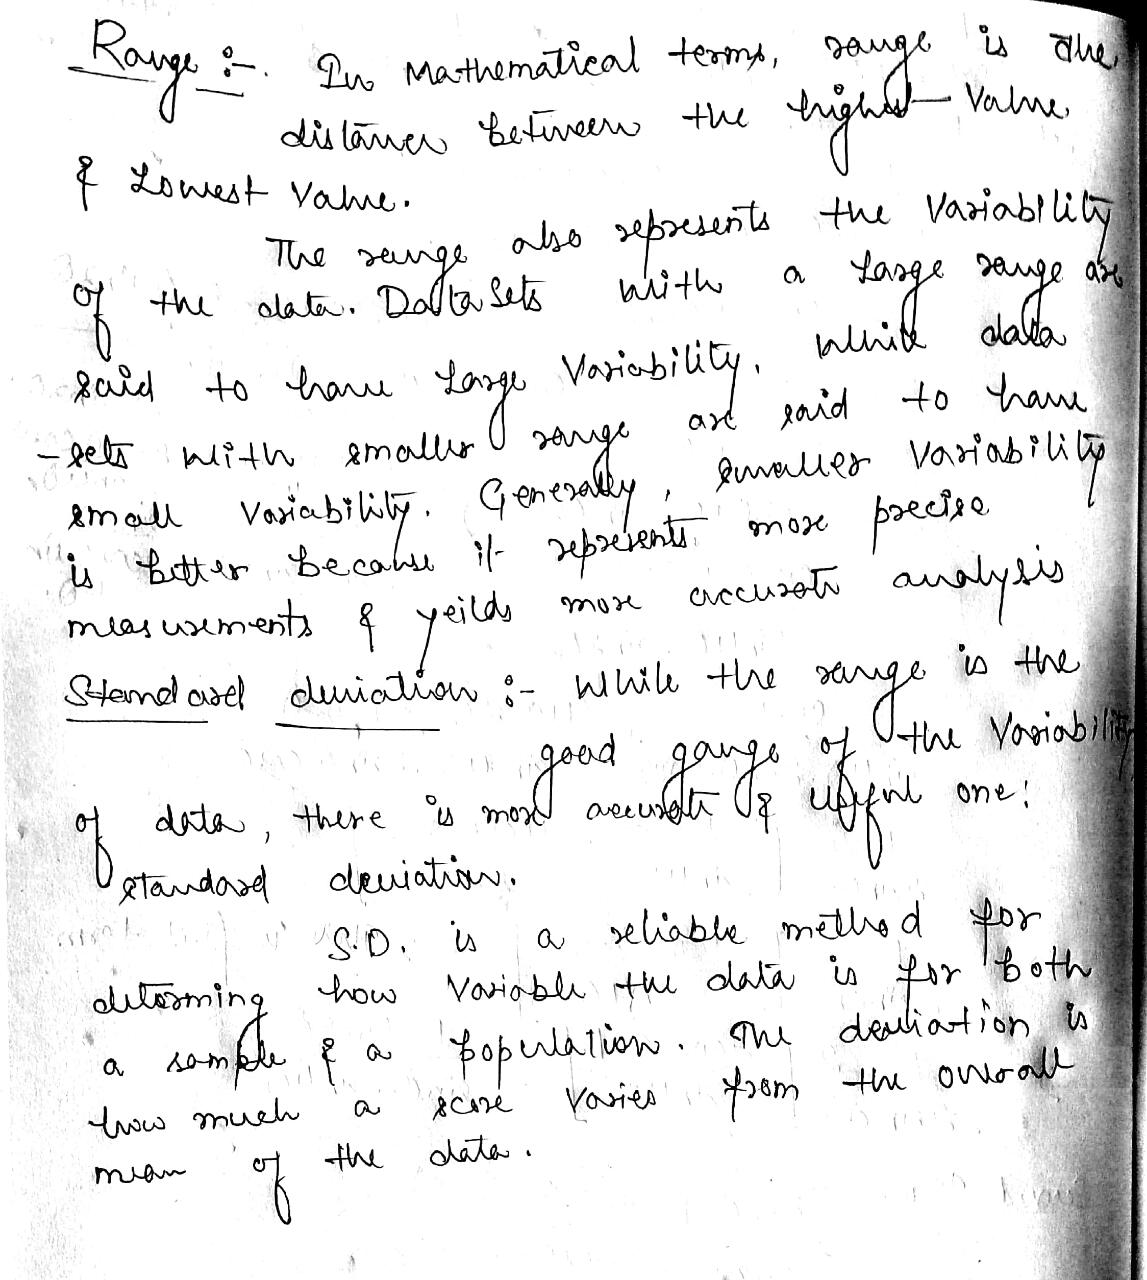 Range :-. In Mathematical terms, range is the
distance between the highest Value
& Lowest Value.
The range also represents the Variability
of the data. Data Sets with a Large range are
said to have Large Variability, while data
-sets with smaller range are said to have
small Variability. Generally, smaller Variability
is better because it represents more precise
measurements & yeilds more accurate analysis
Standard deviation :- While the range is the
good gauge of the Variability
of data, there is more accurate & useful one:
standard deviation.
S.D. is a reliable method for
determing how Variable the data is for both
a sample & a population. The deviation is
how much a score varies from the overall
mean of the data.